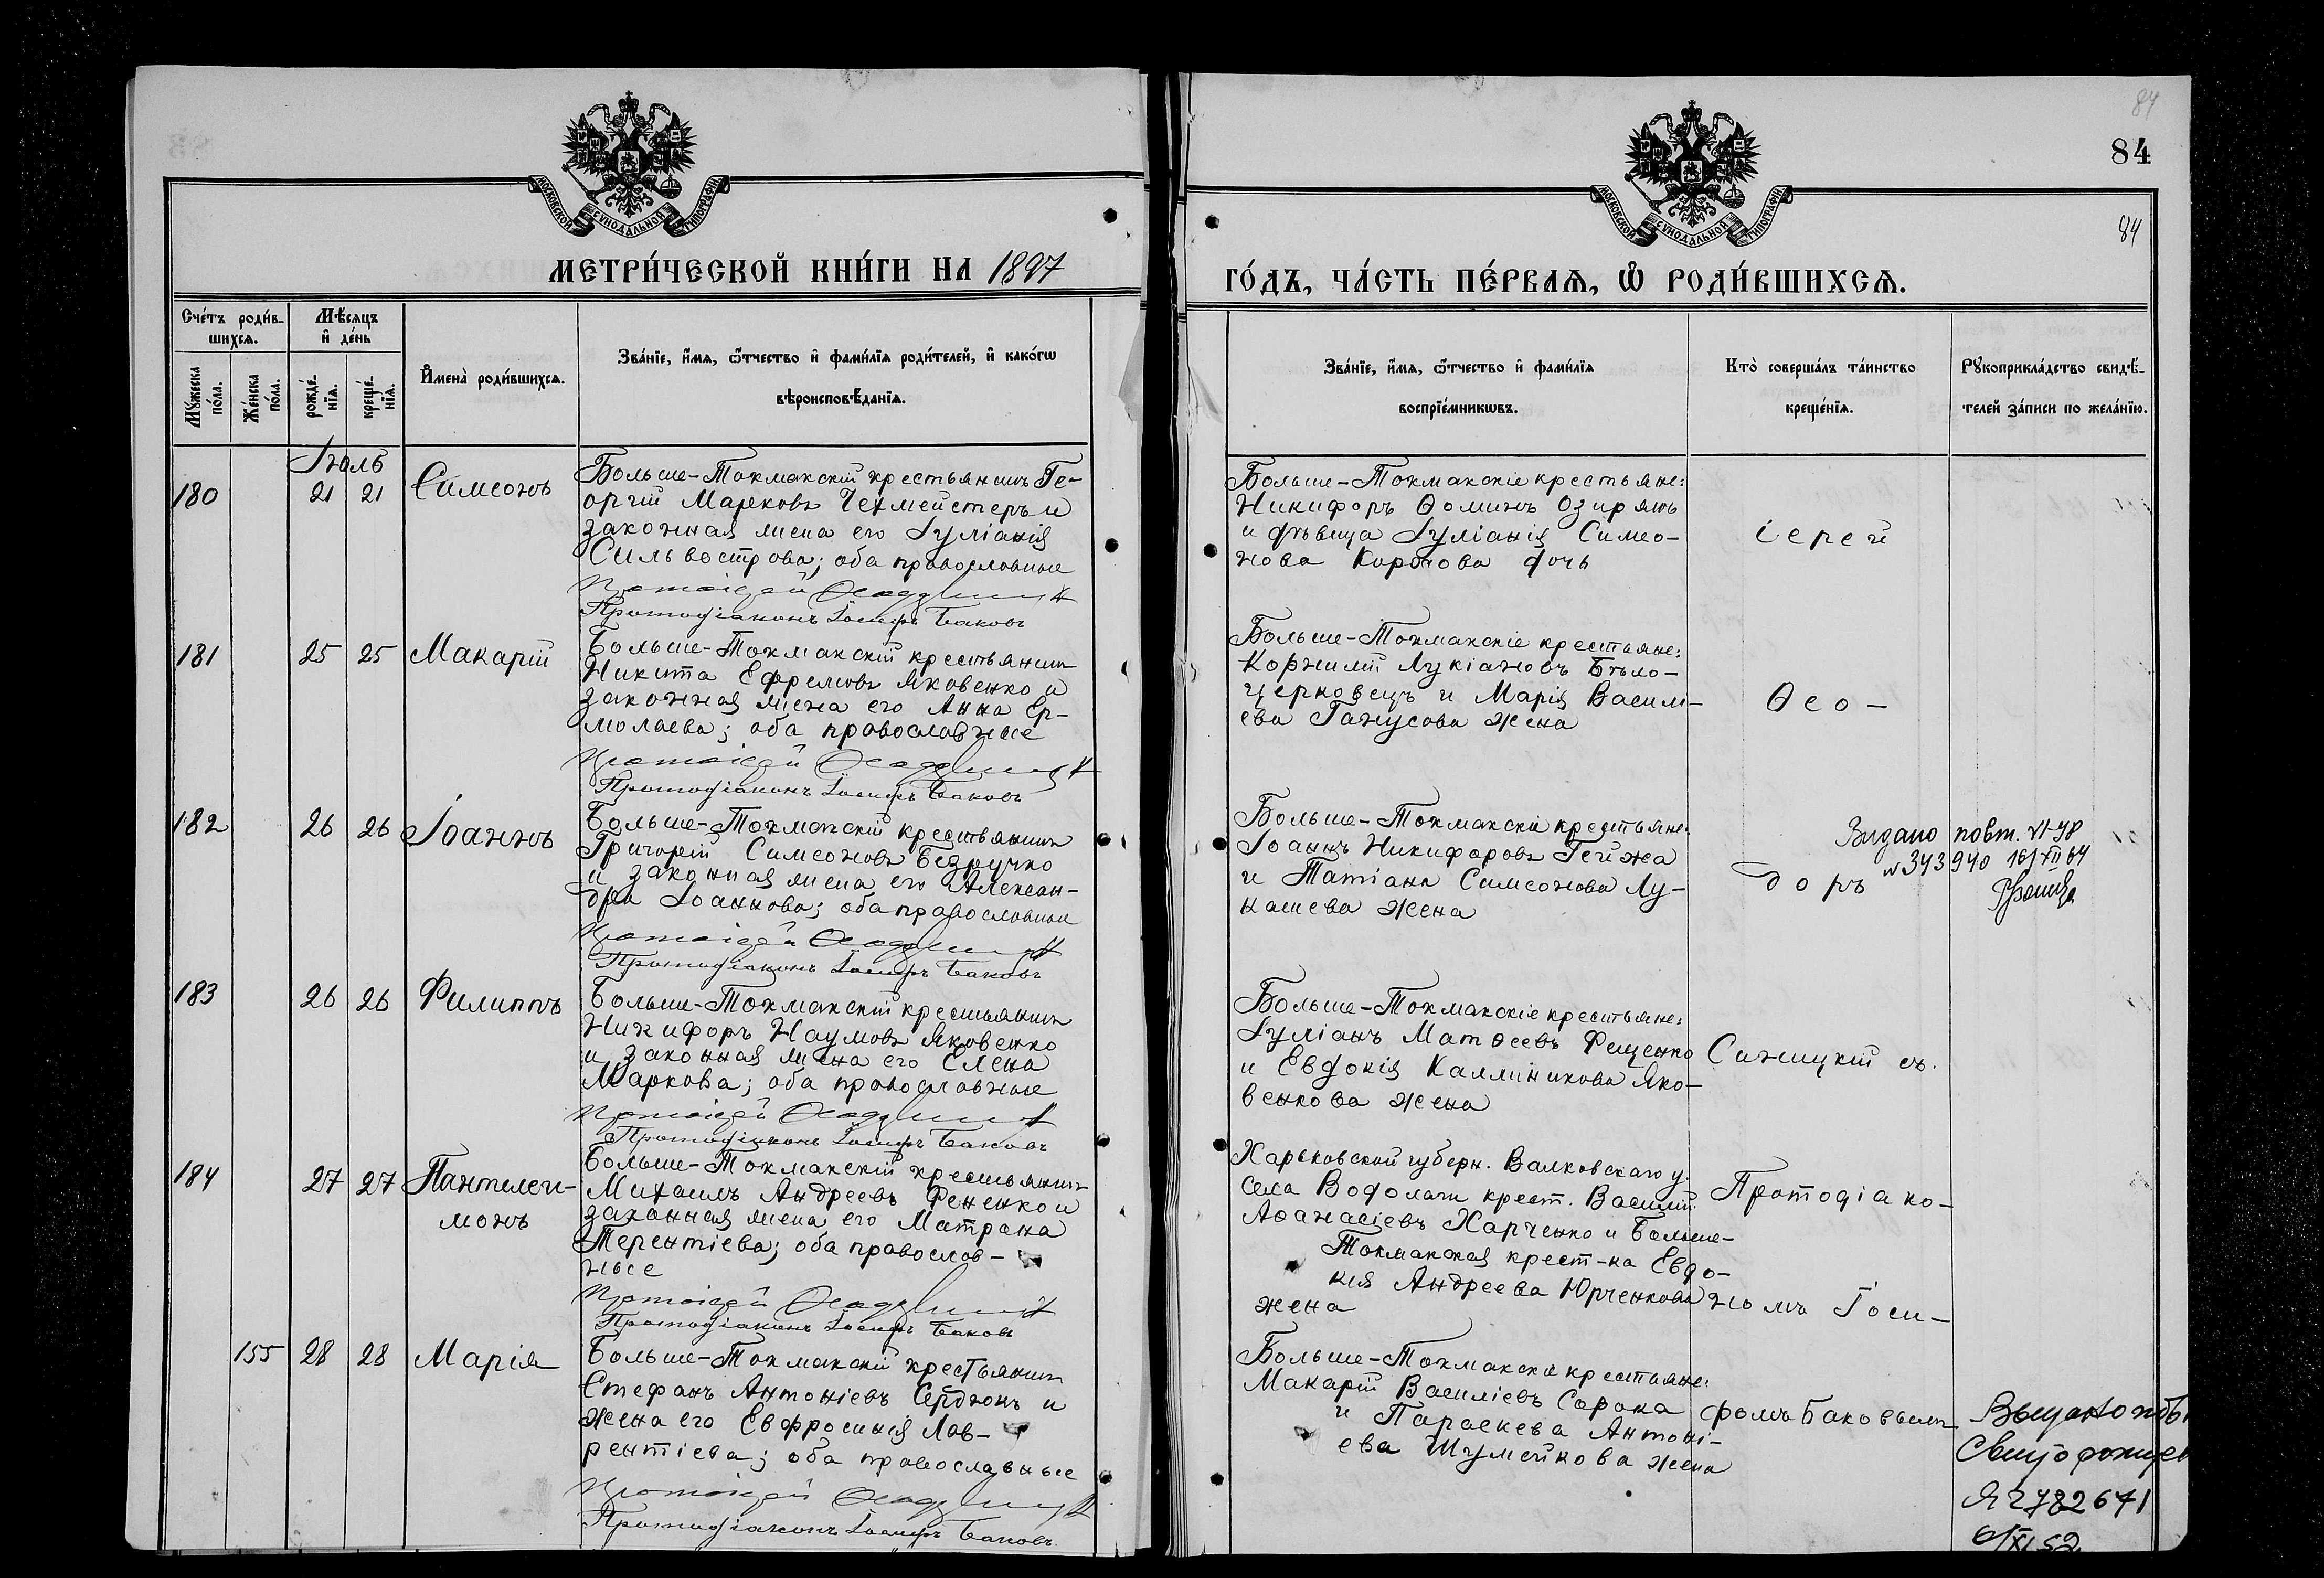 МОСКОВСКОЙ СУНОДАЛЬНОЙ ТИПОГРАФІИ
МЕТРИ́ЧЕСКОЙ КНИ́ГИ НА 1897
Сче́тъ роди́в-
шихсѧ.
Мѣ́сяцъ
и҆ де́нь
Мꙋ́жеска
по́ла.
Же́нска
по́ла.
рожде́-
нїѧ.
креще́-
нїѧ.
И҆мена̀ роди́вшихсѧ.
Зва́нїе, и҆́мѧ, ѻ҆́тчество и҆ фами́лїѧ роди́телей, и҆ како́гѡ
вѣроисповѣ́данїѧ.
Іюль
180 21 21 Симеонъ
Больше-Токмакскій крестьянинъ Ге-
оргій Марковъ Гехмейстеръ и
законная жена его Іуліанія
Сильвестрова; оба православные
Протоіерей
Протодіаконъ Іосифъ Баковъ
181 25 25 Макарій
Больше-Токмакскій крестьянинъ
Никита Ефремовъ Яковенко и
законная жена его Анна Ер-
молаева; оба православные
Протоіерей
Протодіаконъ Іосифъ Баковъ
182 26 26 Іоаннъ
Больше-Токмакскій крестьянинъ
Григорій Симеоновъ Безручко
и законная жена его Алексан-
дра Іоаннова; оба православные
Протоіерей
Протодіаконъ Іосифъ Баковъ
183 26 26 Филиппъ
Больше-Токмакскій крестьянинъ
Никифоръ Наумовъ Яковенко
и законная жена его Елена
Маркова; оба православные
Протоіерей
Протодіаконъ Іосифъ Баковъ
184 27 27 Пантелеи-
монъ
Больше-Токмакскій крестьянинъ
Михаилъ Андреевъ Фененко и
законная жена его Матрона
Терентіева; оба православ-
ные
Протоіерей
Протодіаконъ Іосифъ Баковъ
155 28 28 Марія
Больше-Токмакскій крестьянинъ
Стефанъ Антоніевъ Сердюкъ и
жена его Евфросинія Лав-
рентіева; оба православные
Протоіерей
Протодіаконъ Іосифъ Баковъ
84
84
84
МОСКОВСКОЙ СУНОДАЛЬНОЙ ТИПОГРАФІИ
ГО́ДЪ, ЧА́СТЬ ПЕ́РВАѦ, Ѡ҆ РОДИ́ВШИХСѦ.
Зва́нїе, и҆́мѧ, ѻ҆́тчество и҆ фами́лїѧ
воспрїе́мникѡвъ.
Кто̀ соверша́лъ та́инство
креще́нїѧ.
Рꙋкоприкла́дство свидѣ́-
телей за́писи по жела́нїю.
Больше-Токмакскіе крестьяне:
Никифоръ Ѳоминъ Озирянъ
и дѣвица Іуліанія Симео-
нова Коротова дочь
Больше-Токмакскіе крестьяне:
Корнилій Лукіановъ Бѣло-
церковецъ и Марія Василі-
ева Ганусова жена
Больше-Токмакскіе крестьяне:
Іоаннъ Никифоровъ Гейжа
и Татіана Симеонова Лу-
кашева жена
Больше-Токмакскіе крестьяне:
Іуліанъ Матѳеевъ Фещенко
и Евдокія Каллиникова Яко-
венкова жена
Харьковской губерн. Валковскаго у.
села Водолаги крест. Василій
Аѳанасіевъ Харченко и Больше-
Токмакская крест-ка Евдо-
кія Андреева Юрченкова
жена
Больше-Токмакскіе крестьяне:
Макарій Василіевъ Сорока
и Параскева Антоні-
ева Шумейкова жена
іерей
Ѳео-
доръ
Синицкій съ
Протодіако-
номъ Іоси-
фомъ Баковымъ
Видано повт. VI-ЯР
№ 343940 16/XII 64
Выдано повт
Свид о рожден
ЯР 782671
6/XI 52